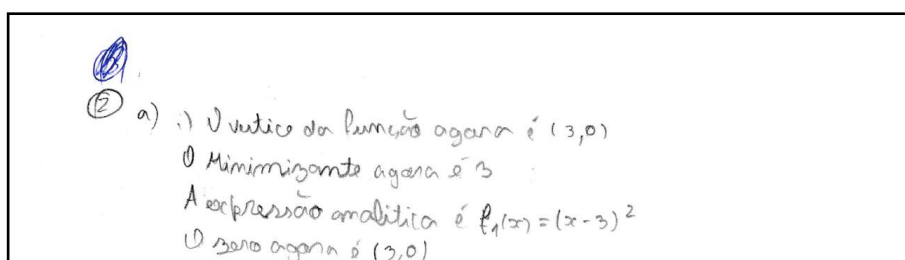 ② a) i) O vertice da função agora é (3,0)
O Minimizante agora é 3
A expressão analitica é f₁(x) = (x-3)²
O zero agora é (3,0)